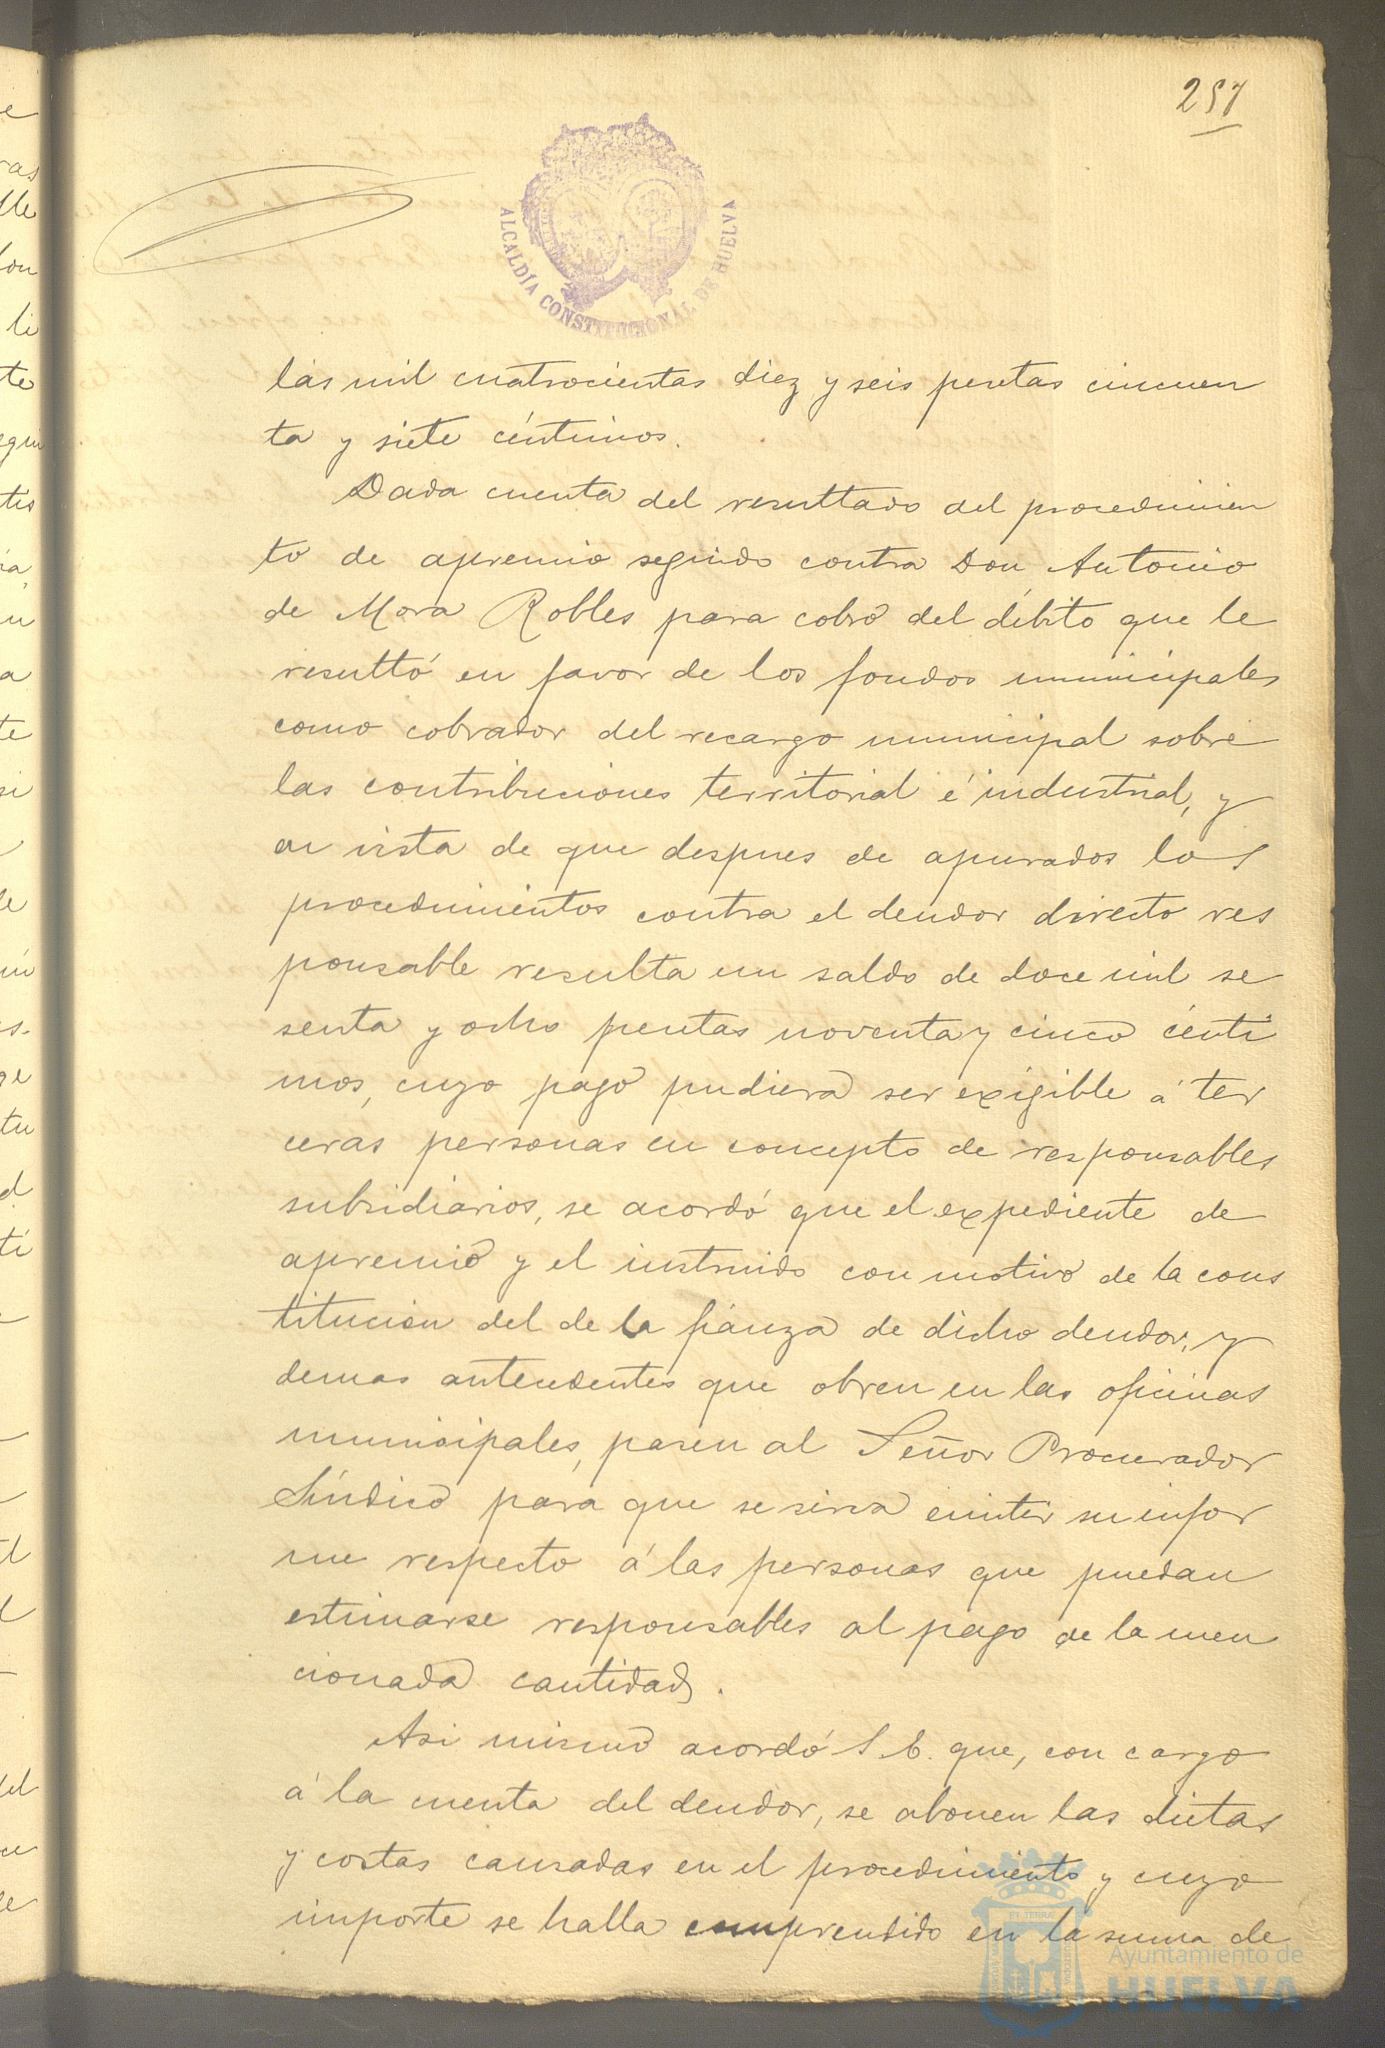 257
ALCALDÍA CONSTITUCIONAL DE HUELVA
las mil cuatrocientas diez y seis pesetas cincuen
ta y siete céntimos.
Dada cuenta del resultado del procedimien
to de apremio seguido contra Don Antonio
de Mora Robles para cobro del débito que le
resultó en favor de los fondos municipales
como cobrador del recargo municipal sobre
las contribuciones territorial é industrial, y
en vista de que despues de apurados los
procedimientos contra el deudor directo res
ponsable resulta un saldo de doce mil se
senta y ocho pesetas noventa y cinco cénti
mos, cuyo pago pudiera ser exigible á ter
ceras personas en concepto de responsables
subsidiarios, se acordó que el expediente de
apremio y el instruido con motivo de la cons
titucion del de la fianza de dicho deudor, y
demas antecedentes que obren en las oficinas
municipales, pasen al Señor Procurador
Síndico para que se sirva emitir su infor
me respecto á las personas que puedan
estimarse responsables al pago de la men
cionada cantidad.
Asi mismo acordó S. E. que, con cargo
á la cuenta del deudor, se abonen las dietas
y costas causadas en el procedimiento y cuyo
importe se halla comprendido en la suma de
Ayuntamiento de
HUELVA